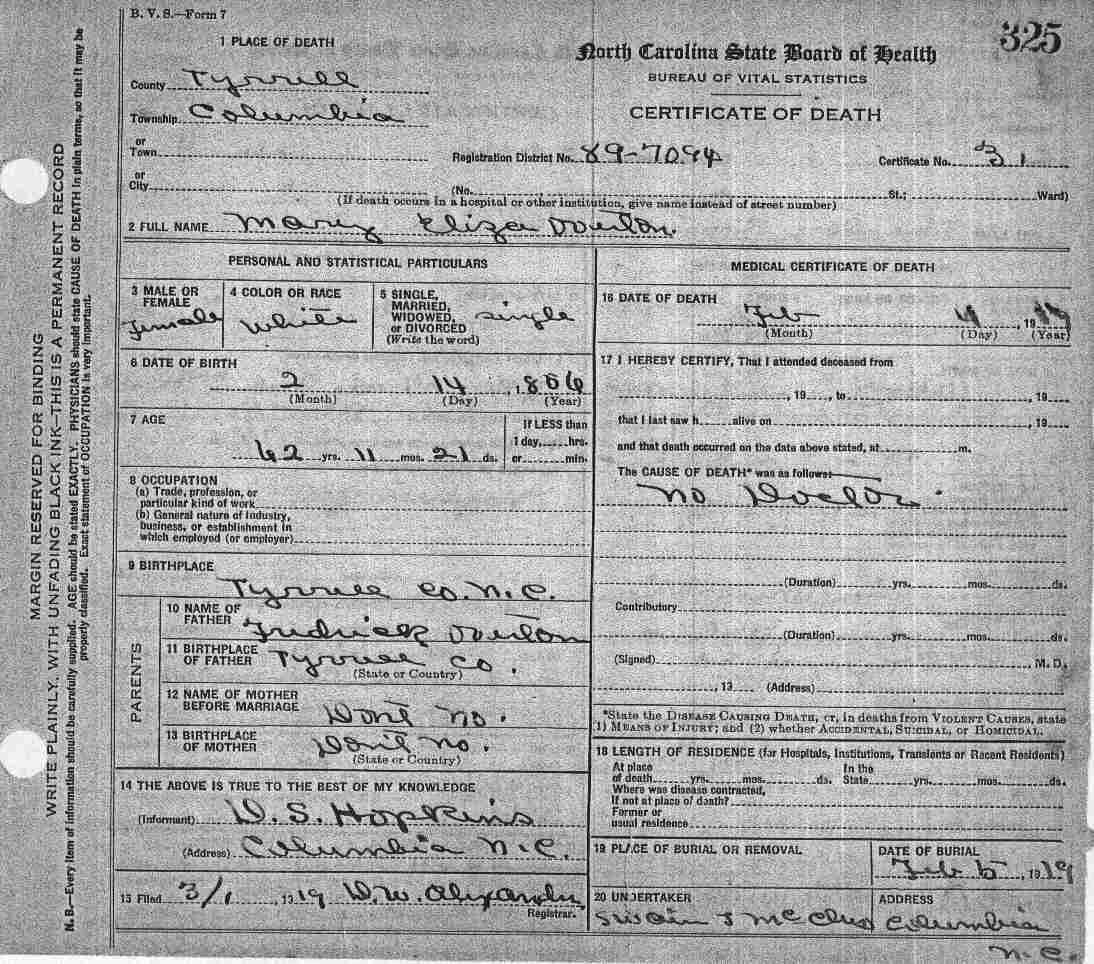 B. V. S.—Form 7
325
1 PLACE OF DEATH
North Carolina State Board of Health
BUREAU OF VITAL STATISTICS
CERTIFICATE OF DEATH
County Tyrrell
Township Columbia
or
Town
Registration District No. 89-7094
Certificate No. 31
or
City
(No. St.; Ward)
(If death occurs in a hospital or other institution, give name instead of street number)
2 FULL NAME Mary Eliza Overton.
PERSONAL AND STATISTICAL PARTICULARS
3 MALE OR FEMALE
Female
4 COLOR OR RACE
White
5 SINGLE, MARRIED, WIDOWED, or DIVORCED
(Write the word)
Single
6 DATE OF BIRTH
2 14, 1856
(Month) (Day) (Year)
7 AGE
62 yrs. 11 mos. 21 ds.
If LESS than
1 day, hrs.
or min.
8 OCCUPATION
(a) Trade, profession, or
particular kind of work
(b) General nature of industry,
business, or establishment in
which employed (or employer)
9 BIRTHPLACE
Tyrrell Co. N.C.
PARENTS
10 NAME OF FATHER
Fredrick Overton
11 BIRTHPLACE OF FATHER
Tyrrell Co.
(State or Country)
12 NAME OF MOTHER BEFORE MARRIAGE
Dont no.
13 BIRTHPLACE OF MOTHER
Dont no.
(State or Country)
14 THE ABOVE IS TRUE TO THE BEST OF MY KNOWLEDGE
(Informant) D. S. Hopkins
(Address) Columbia N.C.
15 Filed 3/1 1919 D. W. Alexander
Registrar.
MEDICAL CERTIFICATE OF DEATH
16 DATE OF DEATH
Feb 4, 1919
(Month) (Day) (Year)
17 I HEREBY CERTIFY, That I attended deceased from
, 19 , to , 19
that I last saw h alive on , 19
and that death occurred on the date above stated, at m.
The CAUSE OF DEATH* was as follows:
No Doctor.
(Duration) yrs. mos. ds.
Contributory
(Duration) yrs. mos. ds.
(Signed) , M. D.
, 19 (Address)
*State the DISEASE CAUSING DEATH, or, in deaths from VIOLENT CAUSES, state
1) MEANS OF INJURY; and (2) whether ACCIDENTAL, SUICIDAL, or HOMICIDAL.
18 LENGTH OF RESIDENCE (for Hospitals, Institutions, Transients or Recent Residents)
At place of death yrs. mos. ds. In the State yrs. mos. ds.
Where was disease contracted,
If not at place of death?
Former or
usual residence
19 PLACE OF BURIAL OR REMOVAL
DATE OF BURIAL
Feb 5, 1919
20 UNDERTAKER
Swain &
ADDRESS
Columbia
N.C.
MARGIN RESERVED FOR BINDING
WRITE PLAINLY, WITH UNFADING BLACK INK—THIS IS A PERMANENT RECORD
N. B.—Every item of information should be carefully supplied. AGE should be stated EXACTLY. PHYSICIANS should state CAUSE OF DEATH in plain terms, so that it may be
properly classified. Exact statement of OCCUPATION is very important.